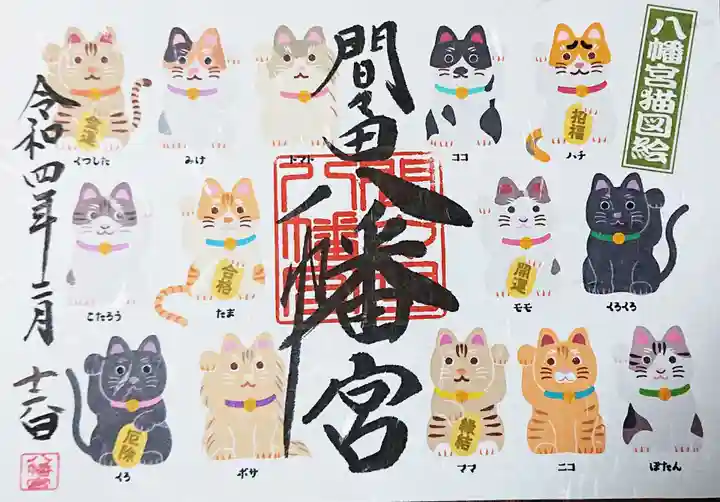 八幡宮猫図絵
間々田八幡宮
令和四年二月
金運
招福
くつした
みけ
トマト
ココ
ハチ
合格
開運
こたろう
たま
モモ
くろくろ
厄除
縁結
くろ
ボサ
ママ
ニコ
ぼたん
八幡宮